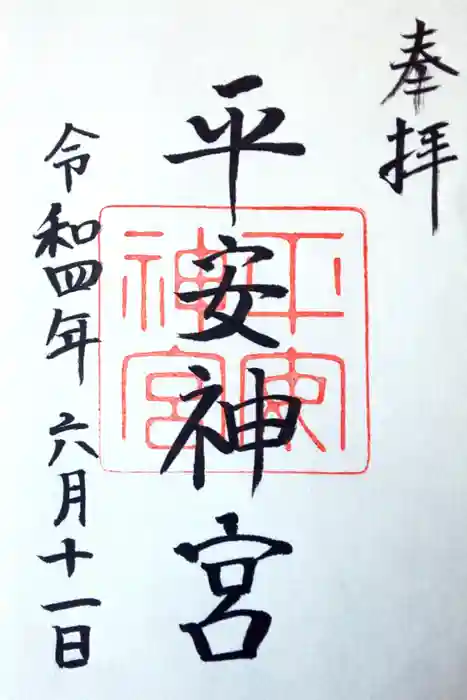 奉拝
平安神宮
平安神宮
令和四年六月十一日